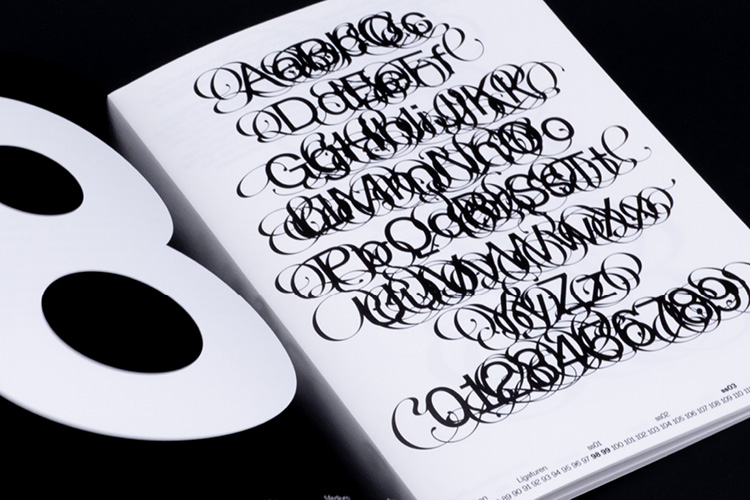 8
AaBbCc
DdEeFf
GgHhIiJjKk
LlMmNnOo
PpQqRrSsTt
UuVvWwXx
YyZz
0123456789
Ligaturen ss01 ss02 ss03
89 90 91 92 93 94 95 96 97 98 99 100 101 102 103 104 105 106 107 108 109 110